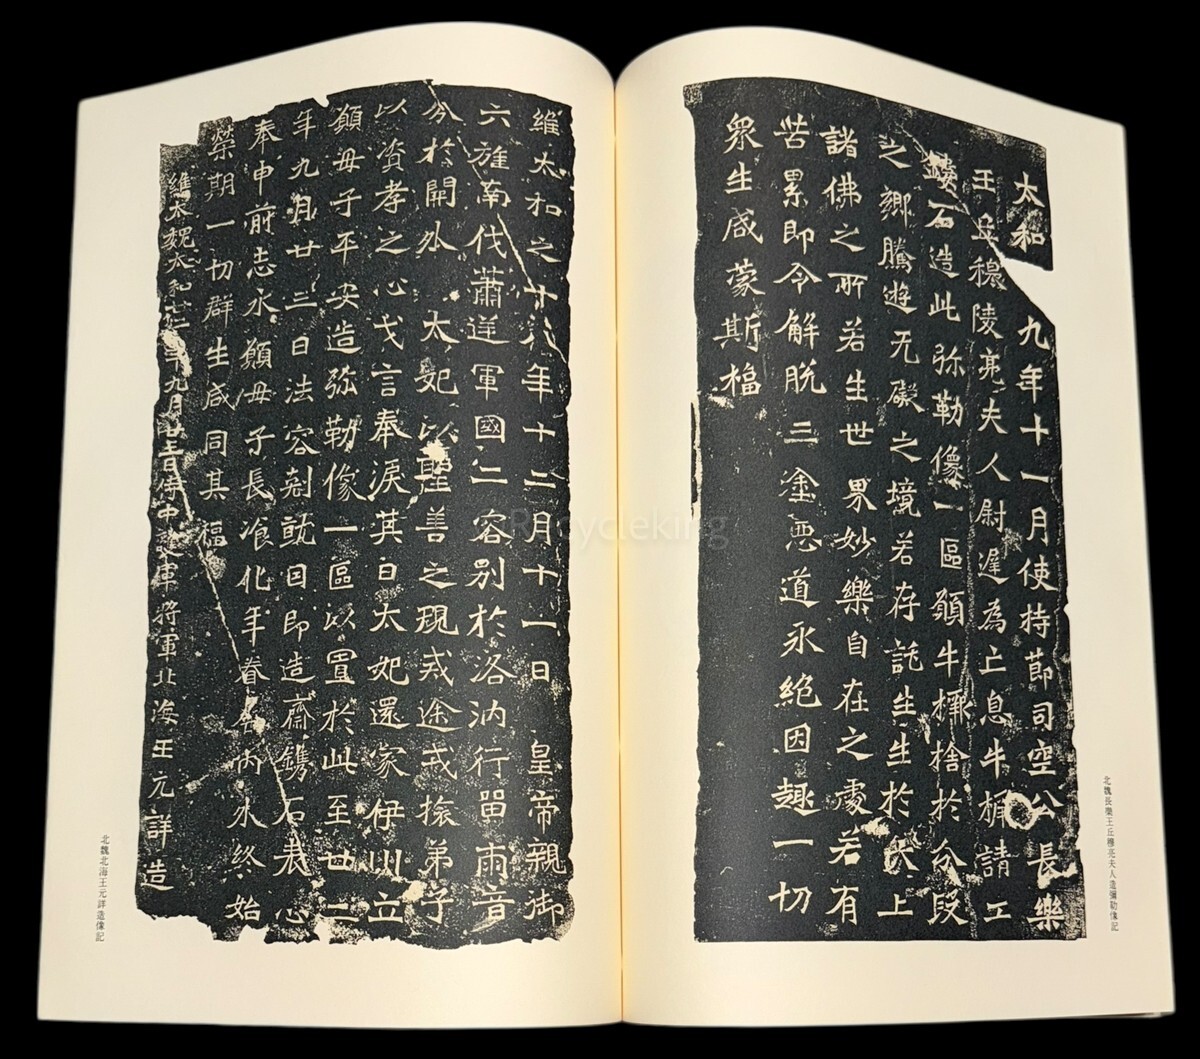 太和九年十一月使持節司空公長樂
王丘穆陵亮夫人尉遲為亡息牛橛請工
鏤石造此弥勒像一區願牛橛捨於分段
之鄉騰遊无礙之境若存託生生於天上
諸佛之所若生世界妙樂自在之處若有
苦累即令解脫三塗惡道永絕因趣一切
眾生咸蒙斯福
北魏長樂王丘穆亮夫人造彌勒像記
維太和之十八年十二月十一日皇帝親御
六旌南伐蕭逆軍國二容別於洛汭行留兩音
分於關外太妃以聖善之規戒途戎旅弟子
以資孝之心戈言奉淚其日太妃還家伊川立
願母子平安造弥勒像一區以置於此至廿二
年九月廿三日法容剋就因即造齋鐫石表心
奉申前志永願母子長飡化年眷屬內外終始
榮期一切群生咸同其福
維大魏太和廿二年九月廿三日侍中護軍將軍北海王元詳造
北魏北海王元詳造像記
Recycleking